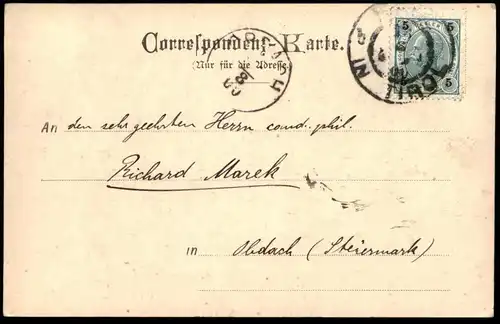 Correspondenz-Karte.
(Nur für die Adresse.)
5 5
5
IN TIROL
An den sehr geehrten Herrn cand. phil.
Richard Marek
in Obdach (Steiermark)